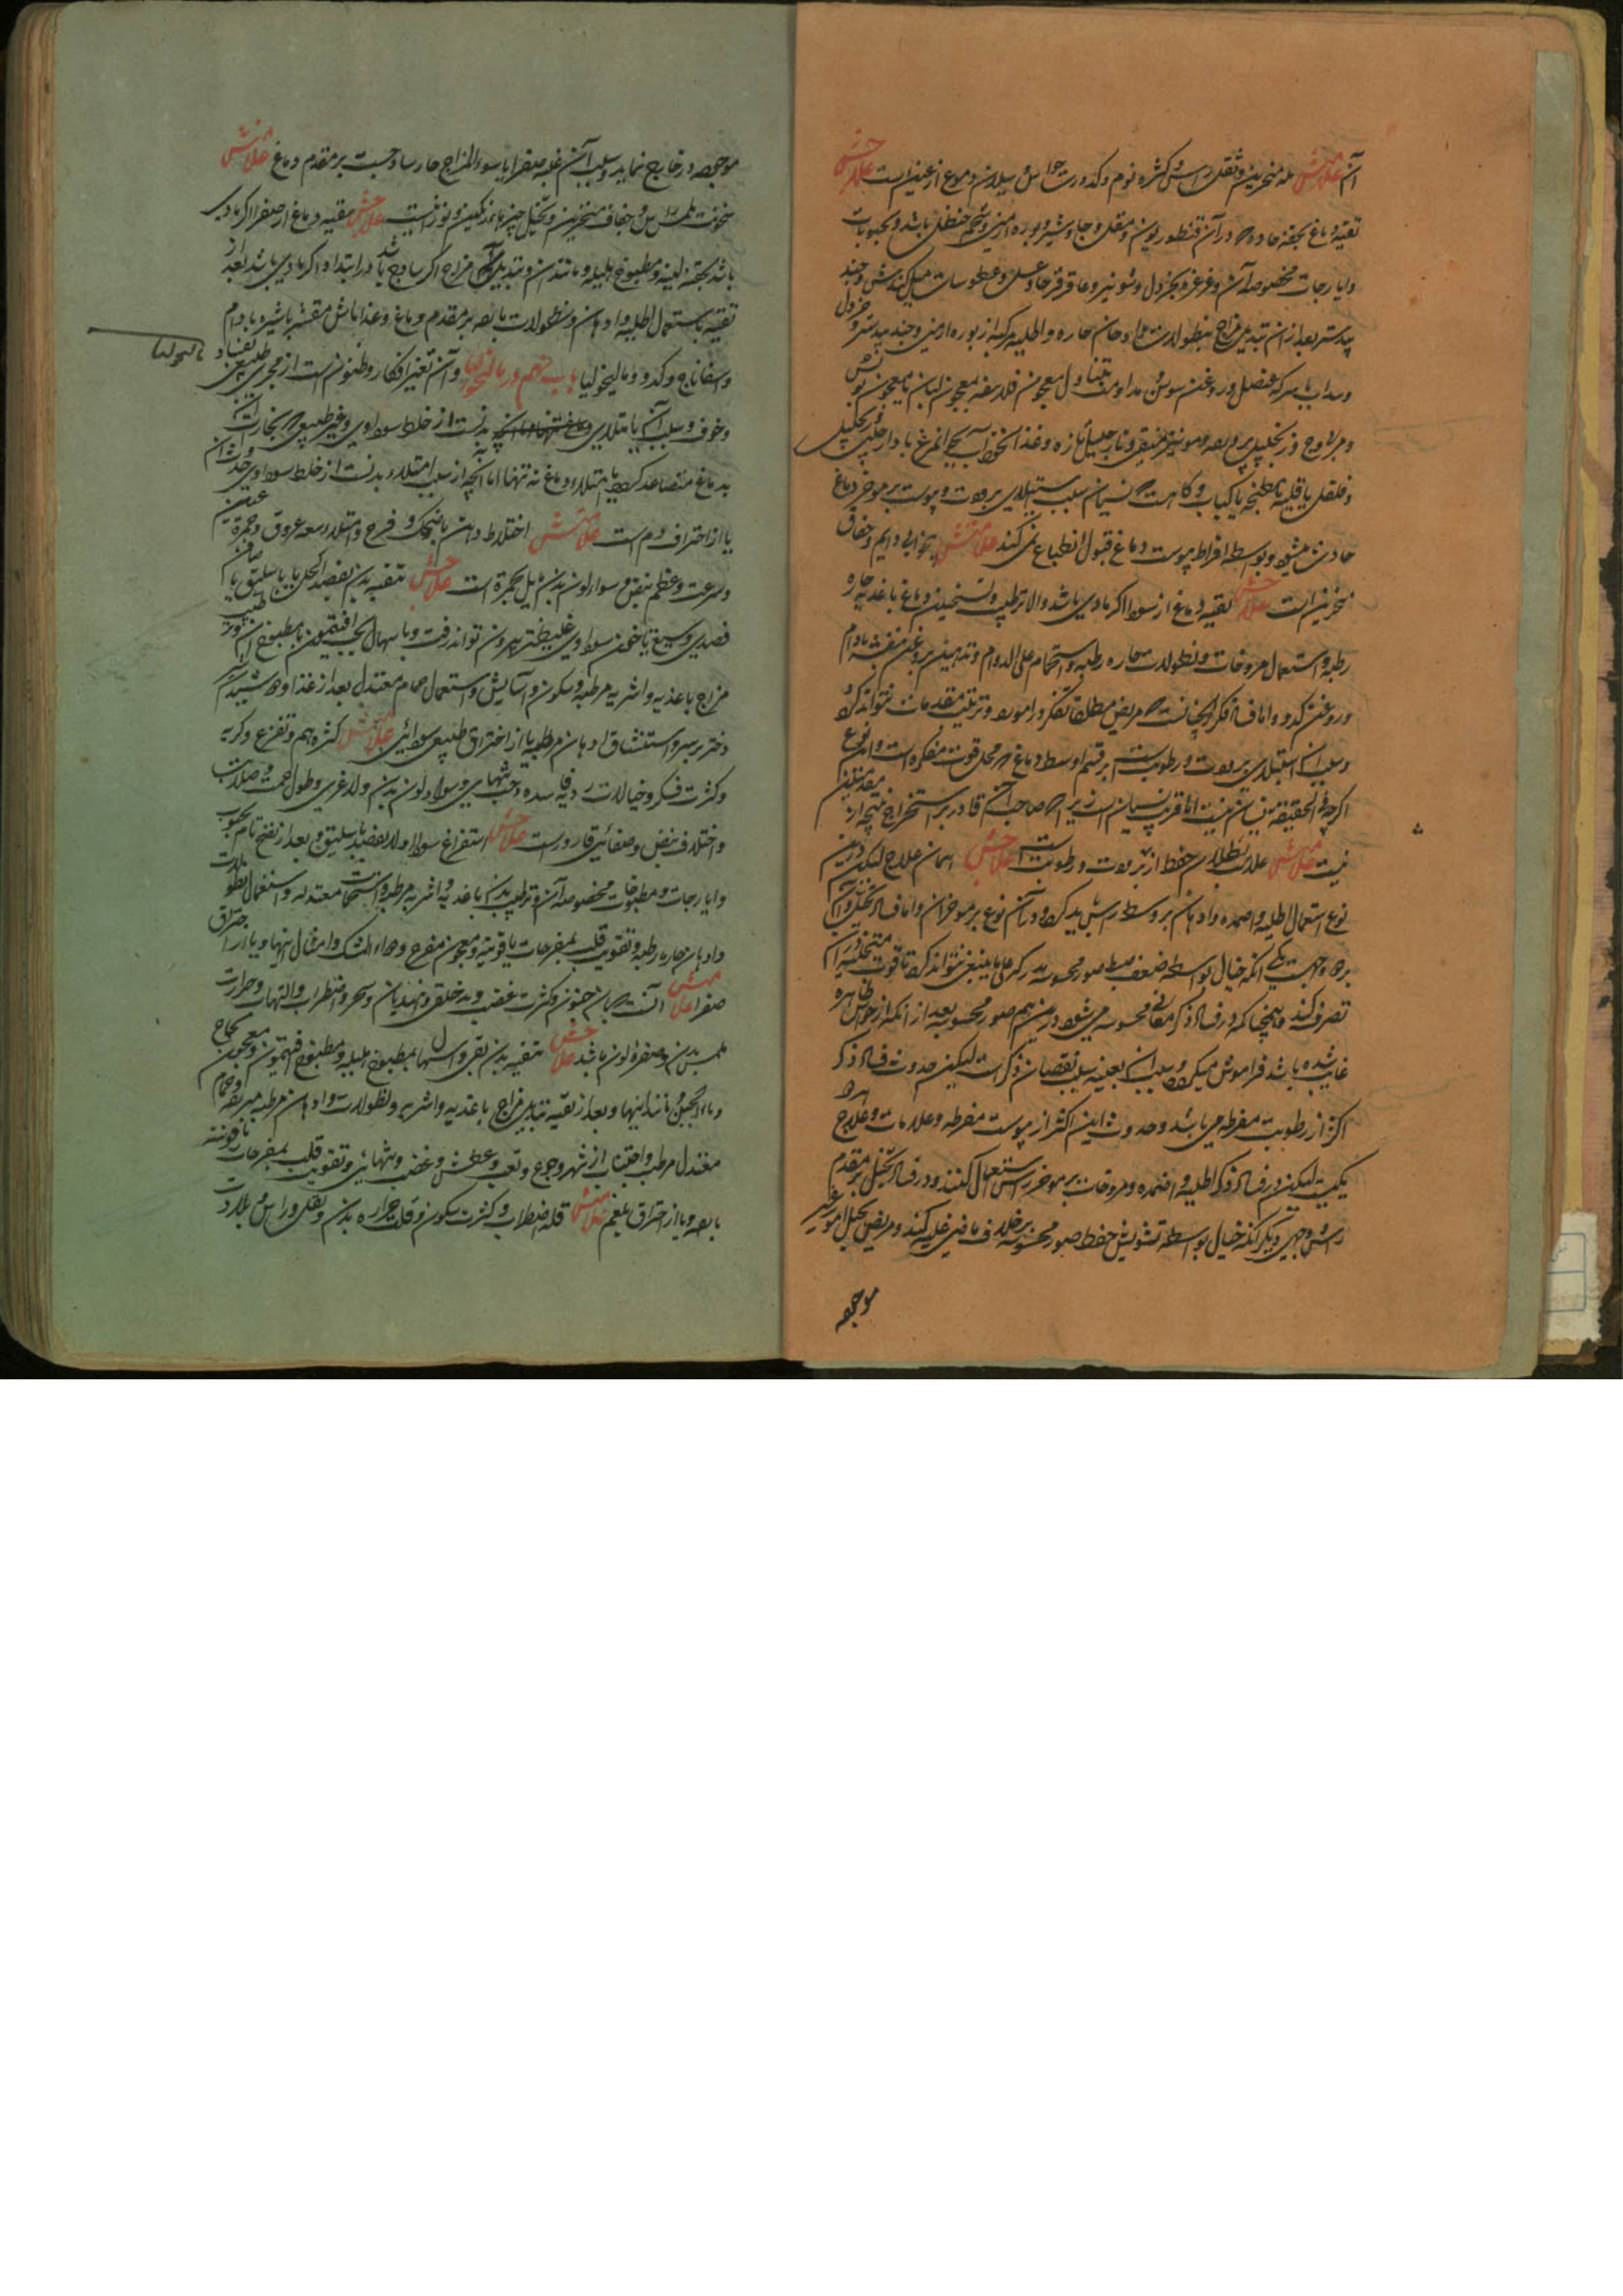 آن علامتش بله منخرین و ثقل راس و کثره نوم و کدورت حواس و سیلان دموع از عینین است علاجش
تنقیه دماغ بحقنه حاده که در آن قنطوریون و مقل و جاوشیر و بوره ارمنی و شحم حنظل باشد و بحبوبات
و ایارجات مخصوصه آن و غرغره بخردل و شونیز و عاقرقرحا و عسل و عطوسات مثل کندش و جند
بیدستر بعد از آن تبدیل مزاج بنطولات حاده و ادهان حاره و اطلیه مرکبه از بوره ارمنی و جند بیدستر و خردل
و سداب با سرکه عنصل و روغن سوسن مداومت بتناول معجون فلاسفه معجون لبان یا معجون بوش
و مرباء وج و زنجبیل مربی و مویز منقی و نارجیل تازه و غذا نخوداب بچه مرغ با دارچینی و زنجبیل
و فلفل یا قلیه یا مطنجه یا کباب و گاهست که نسیان بسبب استیلای برودت و یبوست بر موخر دماغ
حادث میشود و بواسطه افراط یبوست دماغ قبول انطباع نمی کند علامتش بیخوابی دایم و جفاف
منخرین است علاجش تنقیه دماغ از سودا اگر مادی باشد والا ترطیب و تسخین دماغ باغذیه حاره
رطبه و استعمال مروخات و نطولات حاره رطبه و استحمام علی الدوام و تدهین بروغن بنفشه بادام
و روغن کدو و اما فساد فکر اینچنانست که مریض مطلقا تفکر در امور و ترتیب مقدمات نتواند کرد
و سبب آن استیلای برودت و رطوبت است بر قسم اوسط دماغ که محل قوت مفکره است و این نوع
اگرچه فی الحقیقه نسیان نیست اما قریب بنسیان است زیرا که صاحب آن قادر بر استخراج نتیجه از مقدمتین
نیست علامتش علامت بطلان حفظ از برودت و رطوبت است علاجش همان علاج لیکن درین
نوع استعمال اطلیه و اضمده و ادهان بر وسط راس باید کرد و در آن نوع بر موخر آن و اما فساد تخیل و آن
بر دو وجهست یکی آنکه خیال بواسطه ضعف ضبط صور محسوسه مدرکه علی ما ینبغی نتواند کرد تا قوت متخیله در آن
تصرف کند و همچنانکه در فساد ذکر معانی محسوسه می شود درین هم صور محسوسه بعد از آنکه از حواس ظاهره
غایب شده باشد فراموش میگردد و سبب آن بعینه سبب نقصان ذکر است لیکن حدوث فساد ذکر
اکثر از رطوبت مفرطه می باشد و حدوث این اکثر از یبوست مفرطه و علامات و علاج هر دو
یکیست لیکن در فساد ذکر اطلیه و اضمده و مروخات بر موخر راس استعمال کنند و در فساد تخیل بر مقدم
راس و وجهی دیگر آنکه خیال بواسطه تشویش حفظ صور محسوسه برخلاف ما فی غلبه کند و مریض تخیل امور غیر
موجوده
موجوده در خارج نماید و سبب آن غلبه صفرا یا سوء المزاج حار ساذجست بر مقدم دماغ علامتش
سخونت ملمس و جفاف منخرین و تخیل چیزهای رنگین و نورانیست علاجش تنقیه دماغ از صفرا اگر مادی
باشد بحقنه لینه و مطبوخ هلیله و مانند آن و تبدیل مزاج اگر ساذج باشد در ابتدا و اگر مادی باشد بعد از
تنقیه باستعمال اطلیه و ادهان و نطولات بارده بر مقدم دماغ و غذا ماش مقشر با شیره بادام
و اسفاناج و کدو و مالیخولیا باب نهم در مالیخولیا و آن تغیر افکار و ظنونست از مجری طبیعی بفساد
مالیخولیا
و خوف و سبب آن یا امتلای دماغ تنها اما آنچه بدنست از خلط سوداوی و غیر طبیعی که بخارات
بدماغ متصاعد گردد یا امتلاء دماغ نه تنها اما آنچه از سبب امتلاء بدنست از خلط سوداوی حدوث آن
یا از احتراق دم است علامتش اختلاط ذهن با ضحک و فرح و امتلاء و سعه عروق و حمرة عین
و سرعت و عظم نبض و سواد لون بدن مایل بحمرة است علاجش تنقیه بدن بفصد اکحل یا باسلیق یا صافن
فصدی وسیع تا خون سوداوی غلیظ بتمام بیرون تواند رفت و باسهال بحب افتیمون یا مطبوخ آن و ترطیب
مزاج باغذیه و اشربه مرطبه و سکون و آسایش و استعمال حمام معتدل بعد از غذا و دوشیدن شیر
دختر بر سر و استنشاق ادهان مرطبه یا از احتراق طبیعی سودائی علامتش کثره هم و تفزع و گریه
و کثرت فکر و خیالات ردیه فاسده و حب تنهایی و سواد لون بدن و لاغری و طول صمت و صلابت
و اختلاف نبض و صفائی قارورست علاجش استفراغ سودا اولا بفصد باسلیق و بعد از نضج تام بحبوب
و ایارجات و مطبوخات مخصوصه آن و ترطیب بدن باغذیه و اشربه مرطبه و استحمامات معتدله و استعمال نطولات
و ادهان حاره رطبه و تقویت قلب بمفرحات یاقوتیه و معجون مفرح و دواء المسک و امثال اینها و یا از احتراق
صفرا علامتش آنست که هیجان جنون و کثرت غضب و بد خلقی و هذیان و سهر و اضطراب و التهاب و حرارت
ملمس بدن و صفره لون باشد علاجش تنقیه بدن بقی و اسهال بمطبوخ هلیله و مطبوخ افتیمون و معجون نجاح
و ماء الجبن و مانند اینها و بعد از تنقیه تبدیل مزاج باغذیه و اشربه و نطولات و ادهان مرطبه مبرده و حمام
معتدل مرطب و اجتناب از سهر و جوع و تعب و عطش و غضب و تنهایی و تقویت قلب بمفرحات یاقوتیه
بارده و یا از احتراق بلغم علامتش قلة اضطراب و کثرت سکون و قلت حرارة بدن و ثقل در راس و بلادت